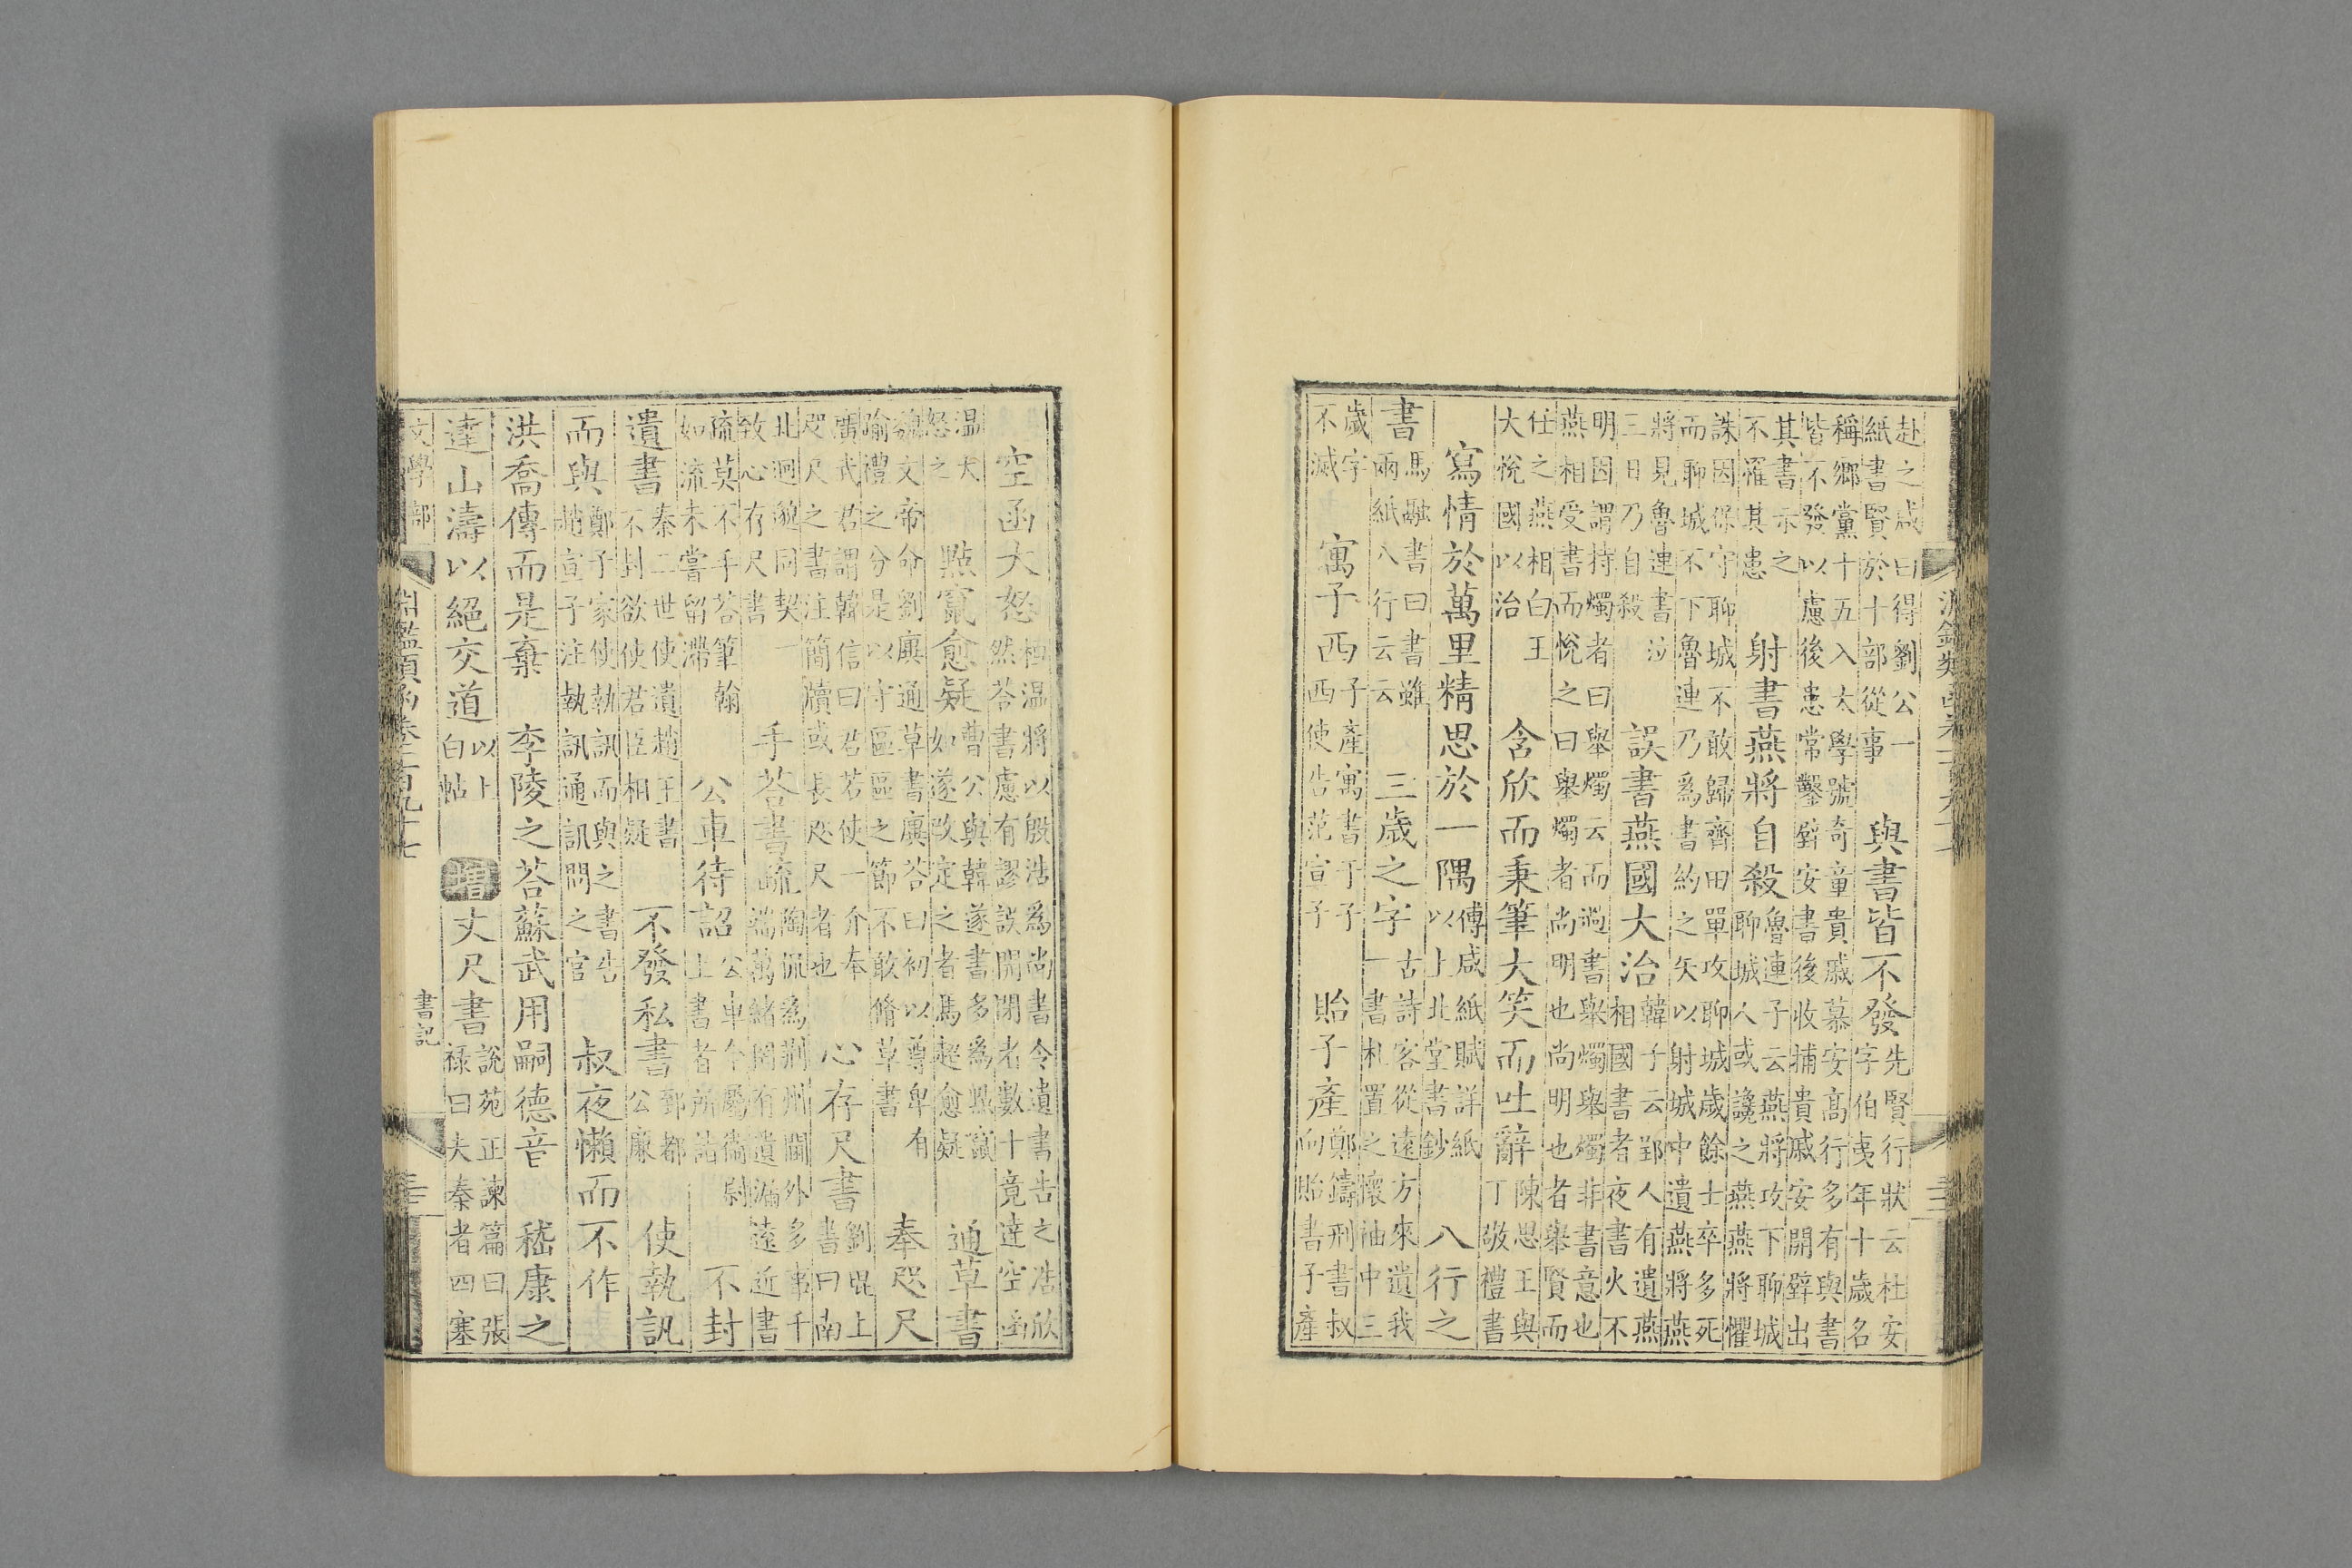 赴之咸曰得劉公一紙書賢於十部從事 與書皆不發 先賢行狀云杜安字伯夷年十歲名
稱鄉黨十五入太學號奇童貴戚慕安高行多有與書皆不發以慮後患常鑿壁安書後收捕貴戚安開壁出
其書示之不罹其患 射書燕將自殺 魯連子云燕將攻下聊城聊城人或讒之燕燕將懼
誅因保守聊城不敢歸齊田單攻聊城歲餘士卒多死而聊城不下魯連乃為書約之矢以射城中遺燕將燕
將見魯連書泣三日乃自殺 誤書燕國大治 韓子云郢人有遺燕相國書者夜書火不
明因謂持燭者曰舉燭云而過書舉燭舉燭非書意也燕相受書而悅之曰舉燭者尚明也尚明也者舉賢而
任之燕相白王大悅國以治 含欣而秉筆大笑而吐辭 陳思王與丁敬禮書
寫情於萬里精思於一隅 傅咸紙賦詳紙以上北堂書鈔 八行之
書 馬融書曰書雖兩紙八行云云 三歲之字 古詩客從遠方來遺我一書札置之懷袖中三
歲字不滅 寓子西 子產寓書于子西使告范宣子 貽子產 鄭鑄刑書叔向貽書子產
空函大怒 桓温將以殷浩為尚書令遺書告之浩欣然荅書慮有謬誤開閉者數十竟達空函
温大怒之 點竄愈疑 曹公與韓遂書多為點竄如遂改定之者馬超愈疑 通草書
魏文帝命劉廙通草書廙荅曰初以尊卑有喻禮之分是以守區區之節不敢脩草書 奉咫尺
廣武君謂韓信曰君若使一介奉咫尺之書注簡牘或長咫尺者也 心存尺書 劉琨上書曰南
北迥邈同契一致心存尺書 手荅書疏 陶侃為荊州閫外多事千端萬緒罔有遺漏遠近書
疏莫不手荅筆翰如流未嘗留滯 公車待詔 公車令屬衛尉上書者所詣 不封
遺書 秦二世使遺趙王書不封欲使君臣相疑 不發私書 郅都公廉 使執訊
而與 鄭子家使執訊而與之書告趙宣子注執訊通訊問之官 叔夜懶而不作
洪喬傳而是棄 李陵之荅蘇武用嗣德音 嵇康之
達山濤以絕交道 以上白帖 增 丈尺書 説苑正諫篇曰張禄曰夫秦者四塞
文學部 淵鑑類函卷一百九十七 書記